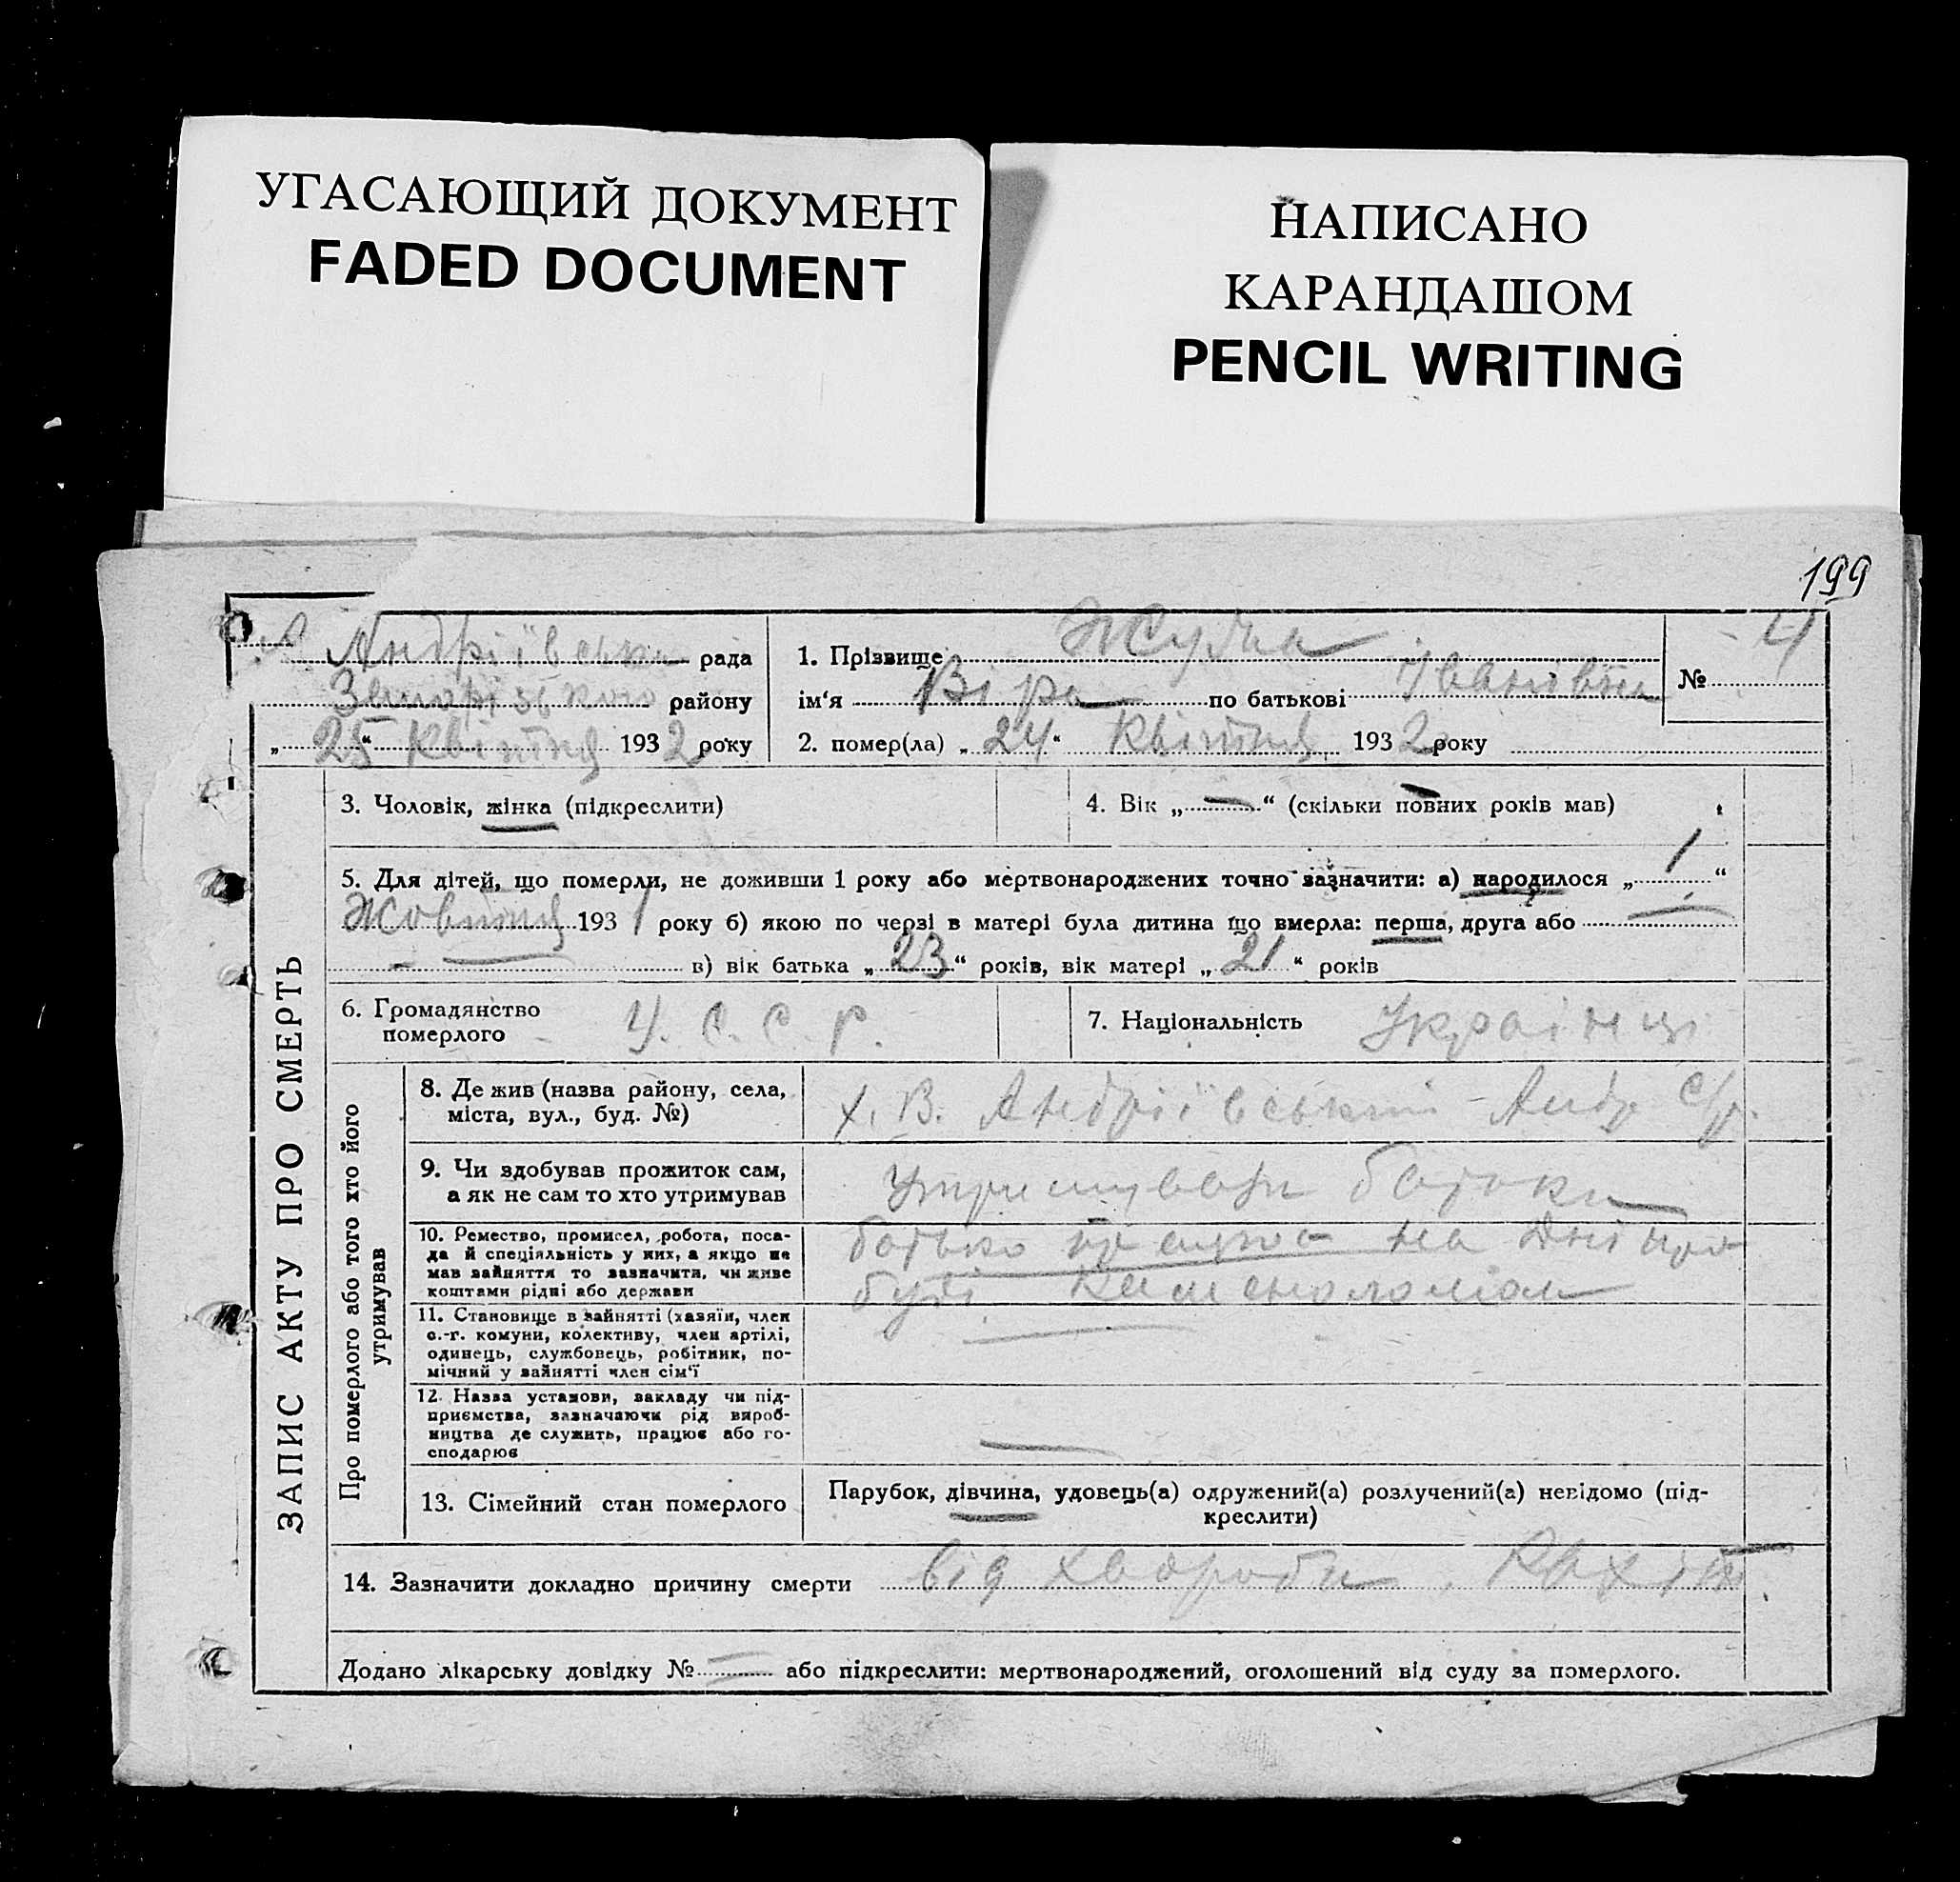 УГАСАЮЩИЙ ДОКУМЕНТ
FADED DOCUMENT
НАПИСАНО
КАРАНДАШОМ
PENCIL WRITING
199
Андріївська рада
Запорізького району
„25“ Квітня 1932 року
1. Прізвище Жуб
ім‘я Віра по батькові Іванівна
№ 4
2. помер(ла) „24“ Квітня 1932 року
ЗАПИС АКТУ ПРО СМЕРТЬ
3. Чоловік, жінка (підкреслити)
4. Вік „—“ (скільки повних років мав)
5. Для дітей, що померли, не доживши 1 року або мертвонароджених точно зазначити: а) народилося „1“
Жовтня 1931 року б) якою по черзі в матері була дитина що вмерла: перша, друга або —
— в) вік батька „23“ років, вік матері „21“ років
6. Громадянство
померлого
У. С. С. Р.
7. Національність Українці
Про померлого або того хто його
утримував
8. Де жив (назва району, села,
міста, вул., буд. №)
х. В. Андріївський Андр с/р.
9. Чи здобував прожиток сам,
а як не сам то хто утримував
Утримували батьки
10. Ремество, промисел, робота, поса-
да й спеціяльність у них, а якщо не
мав зайняття то зазначити, чи живе
коштами рідні або держави
батько працює на Дніпро
буді каменоломом
11. Становище в зайнятті (хазяїн, член
с.-г. комуни, колективу, член артілі,
одинець, службовець, робітник, по-
мічний у зайнятті член сім‘ї
12. Назва установи, закладу чи під-
приємства, зазначаючи рід вироб-
ництва де служить, працює або го-
сподарює
—
13. Сімейний стан померлого
Парубок, дівчина, удовець(а) одружений(а) розлучений(а) невідомо (під-
креслити)
14. Зазначити докладно причину смерти від хвороби, Рахіт
Додано лікарську довідку №— або підкреслити: мертвонароджений, оголошений від суду за померлого.